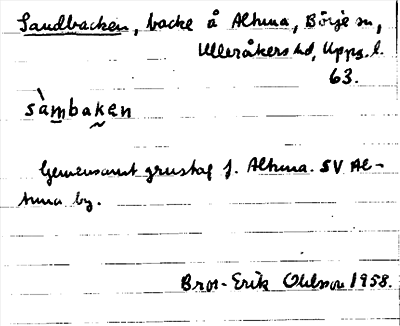 Sandbacken, backe å Altuna, Börje sn,
Ulleråkers hd, Upps. l.
63.
sàmbaken
Gemensamt grustag f. Altuna. SV Al-
tuna by.
Bror-Erik Ohlsson 1958.